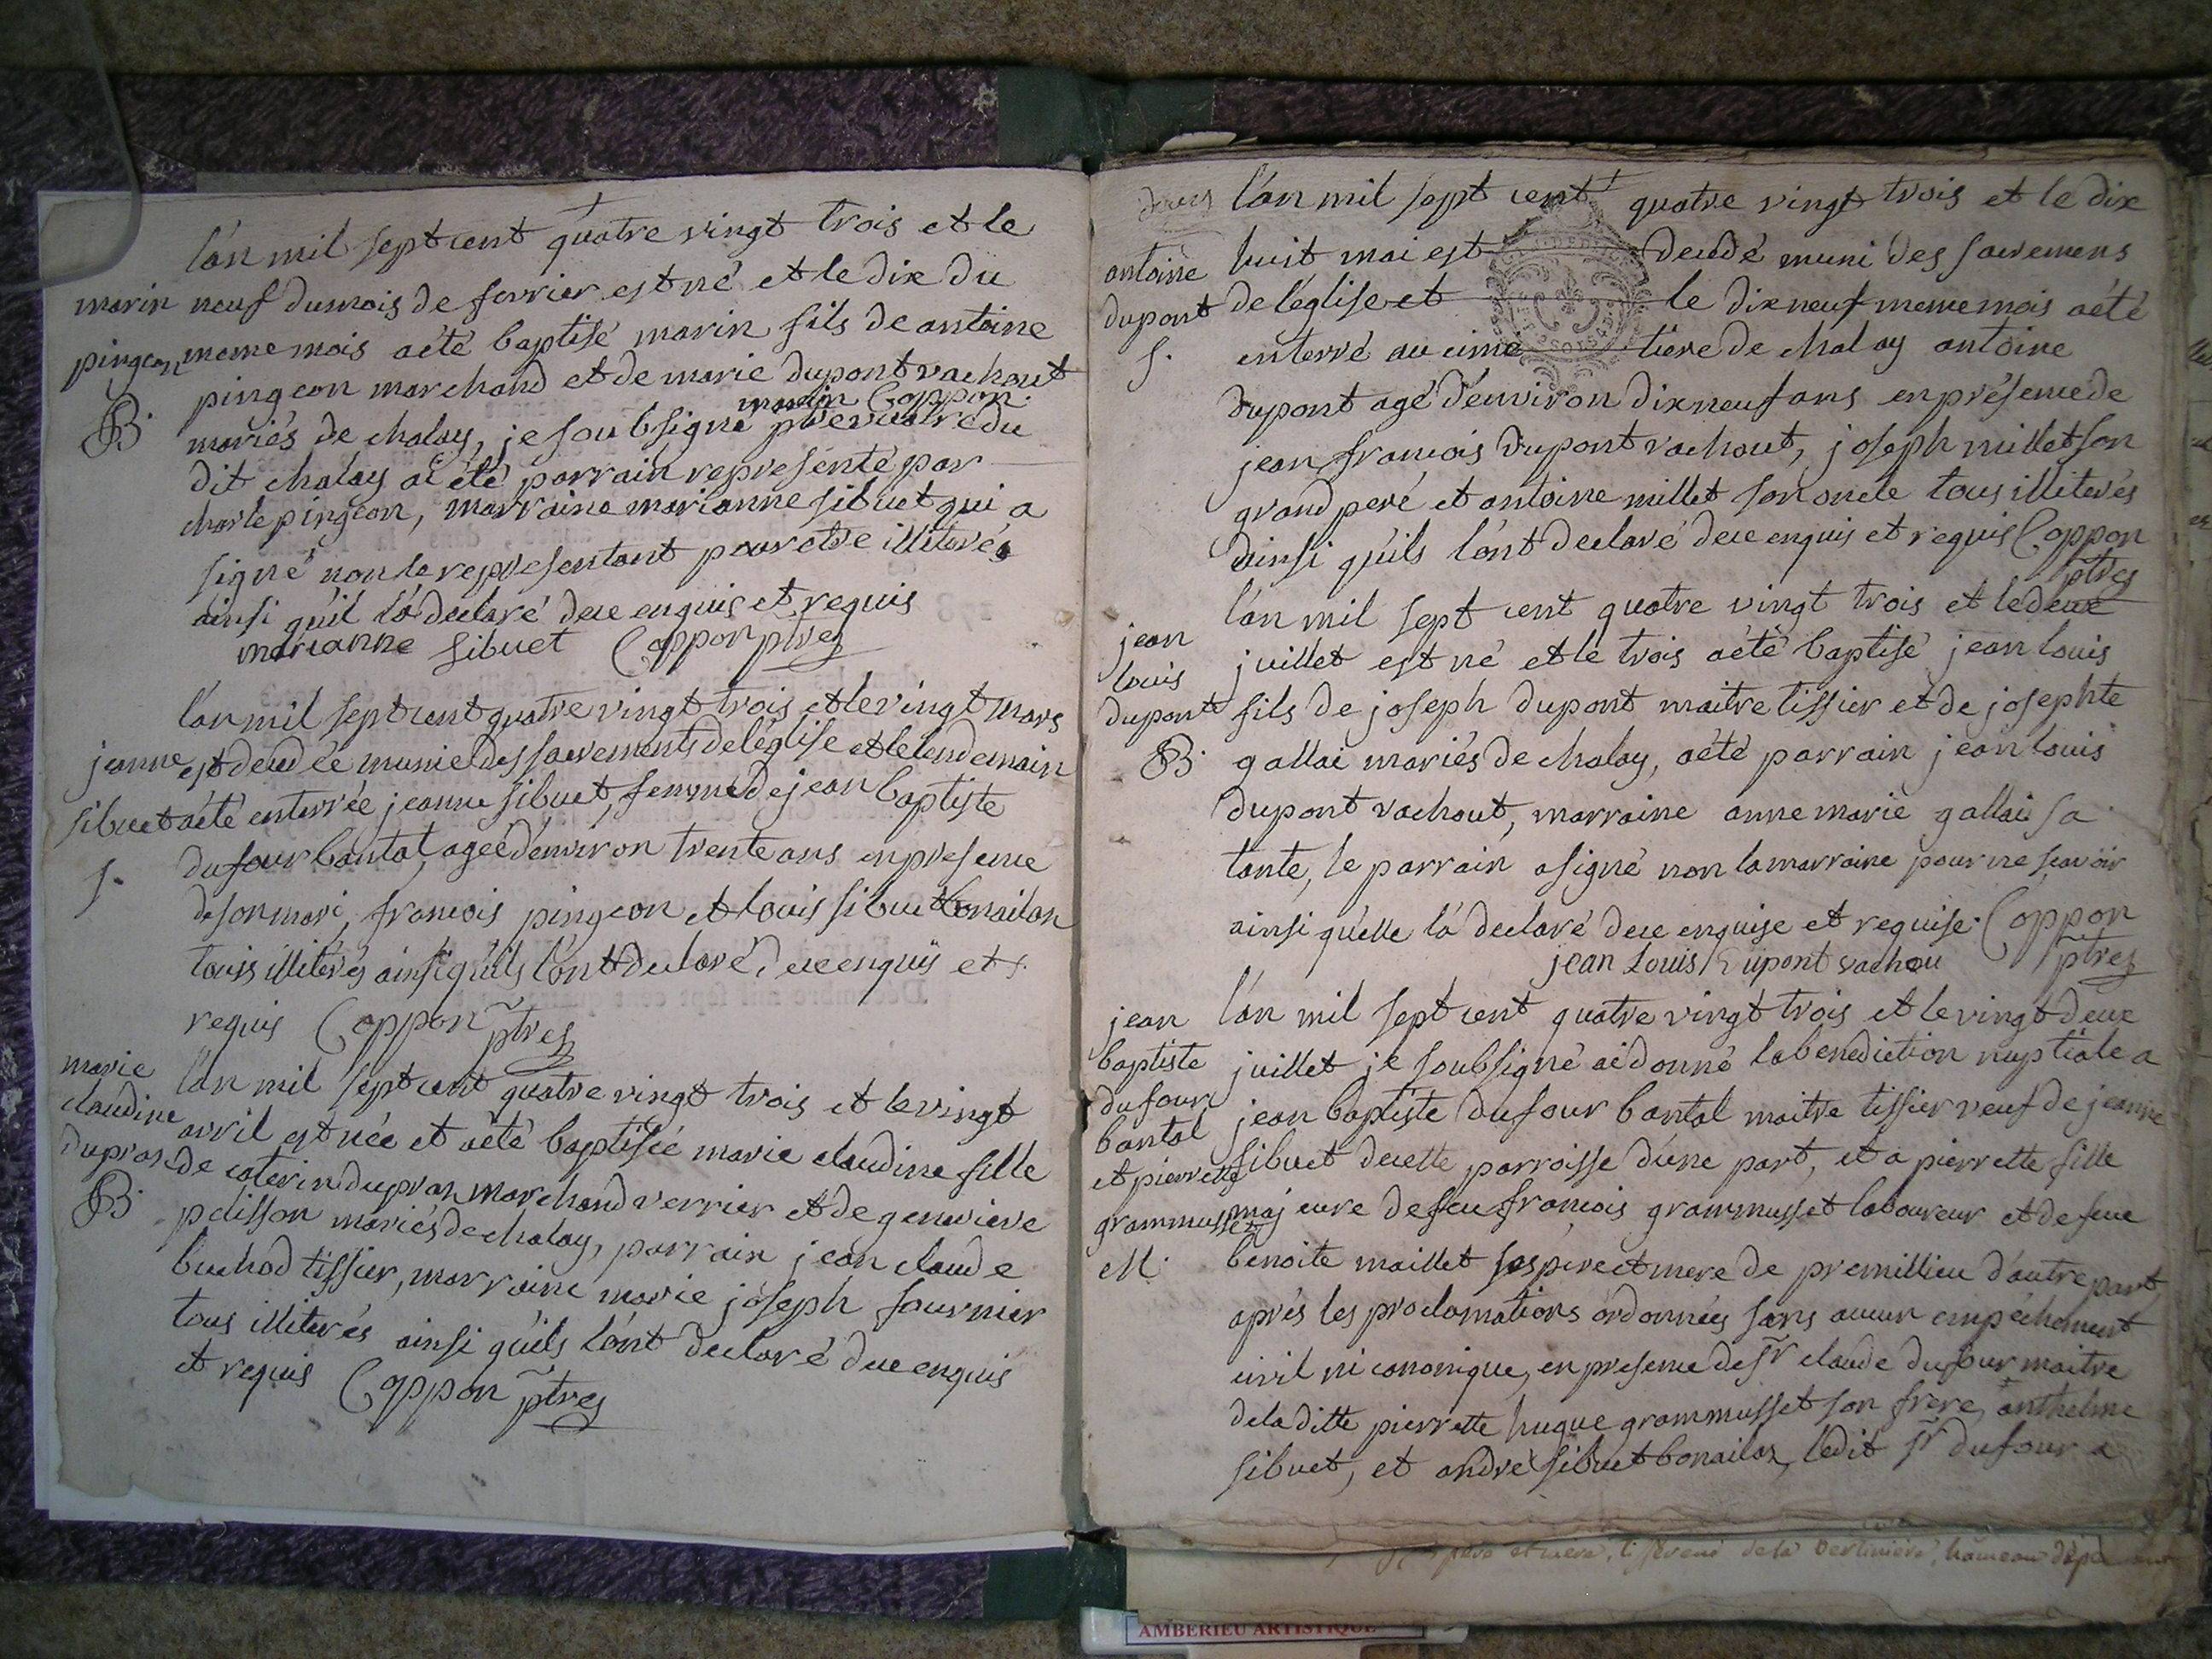 l'an mil sept cent quatre vingt trois et le
marin neuf du mois de fevrier est né et le dix du
pingeon meme mois a été baptisé marin fils de antoine
pingeon marchand et de marie dupont vachout
marin Coppon
B. mariés de chaley, je soubsigné ptre vicaire du
dit chaley ai été parrain representé par
charle pingeon, marraine marianne sibuet qui a
signé non le representant pour etre illiterés
ainsi qu'il l'a declaré de ce enquis et requis
marianne sibuet Coppon ptre
l'an mil sept cent quatre vingt trois et le vingt mars
jeanne est decedée munie des sacrements de l'église et le lendemain
sibuet a été enterrée jeanne sibuet, femme de jean baptiste
S. dufour bantal, agée d'environ trente ans en presence
de son mari, francois pingeon et louis sibuet bonailan
tous illiterés ainsi qu'ils l'ont declaré, de ce enquis et
requis Coppon ptre
marie l'an mil sept cent quatre vingt trois et le vingt
claudine avril est née et a été baptisée marie claudine fille
dupras de caterin dupras marchand verrier et de genevieve
B. pelisson mariés de chaley, parrain jean claude
buchod tissier, marraine marie joseph fournier
tous illiterés ainsi qu'ils l'ont declaré de ce enquis
et requis Coppon ptre
l'an mil sept cent quatre vingt trois et le dix
antoine huit mai est decedé muni des sacremens
dupont de l'église et le dix neuf meme mois a été
S. enterré au cimetiere de chaley antoine
dupont agé d'environ dix neuf ans en présence de
jean francois dupont vachout, joseph millet son
grand pere et antoine millet son oncle tous illiterés
ainsi qu'ils l'ont declaré de ce enquis et requis Coppon
ptre
l'an mil sept cent quatre vingt trois et le deux
jean
louis juillet est né et le trois a été baptisé jean louis
dupont fils de joseph dupont maitre tissier et de josephte
B. gallai mariés de chaley, a été parrain jean louis
dupont vachout, marraine anne marie gallai sa
tante, le parrain a signé non la marraine pour ne scavoir
ainsi qu'elle l'a declaré de ce enquise et requise. Coppon
jean Louis Dupont vachou ptre
jean l'an mil sept cent quatre vingt trois et le vingt deux
baptiste juillet je soubsigné ai donné la benediction nuptiale a
dufour
bantal jean baptiste dufour bantal maitre tissier veuf de jeanne
et pierrette sibuet de cette parroisse d'une part, et a pierrette fille
grammusset majeure de feu francois grammusset laboureur et de feue
M. benoite maillet ses pere et mere de premillieu d'autre part
aprés les proclamations ordonnées sans aucun empéchement
civil ni canonique, en presence de sr claude dufour maitre
de la ditte pierrette hugue grammusset son frere, anthelme
sibuet, et andré sibuet bonailan, ledit sr dufour a
pere et mere,
AMBERIEU ARTISTIQUE